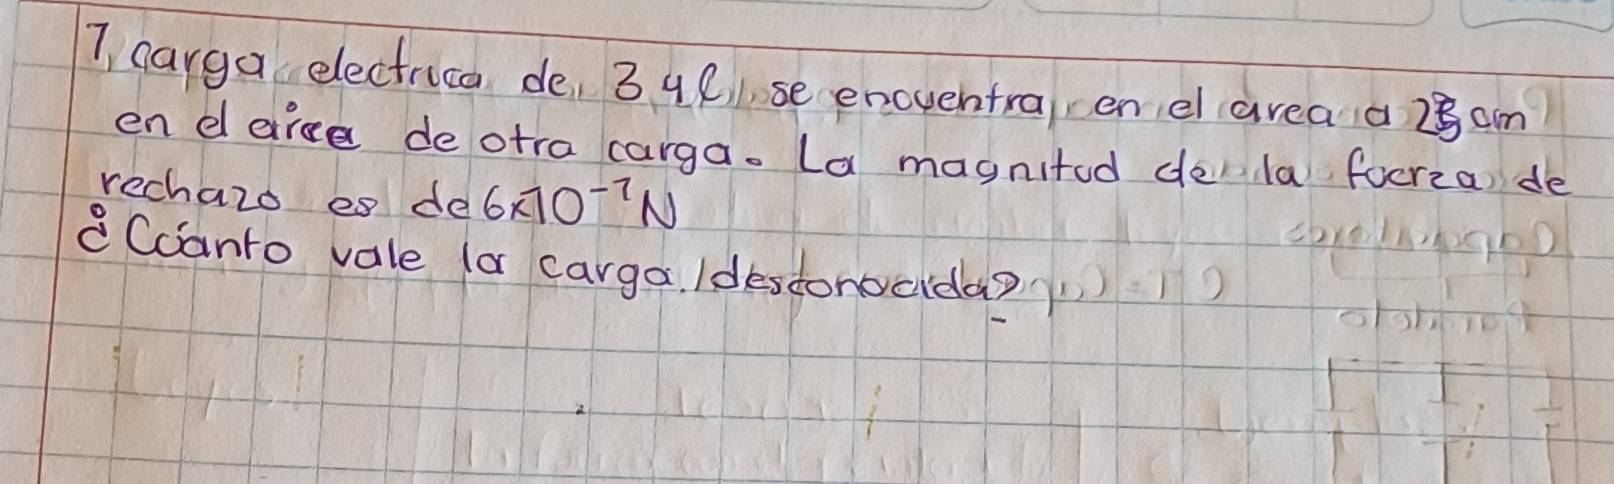 7, carga electrica de, 3 4C, se encuentra, en el area a 25 cm
en el de otra carga. La magnitud de la fuerza de
rechazo es de 6x10⁻⁷N
¿Cuanto vale la carga desconocida?